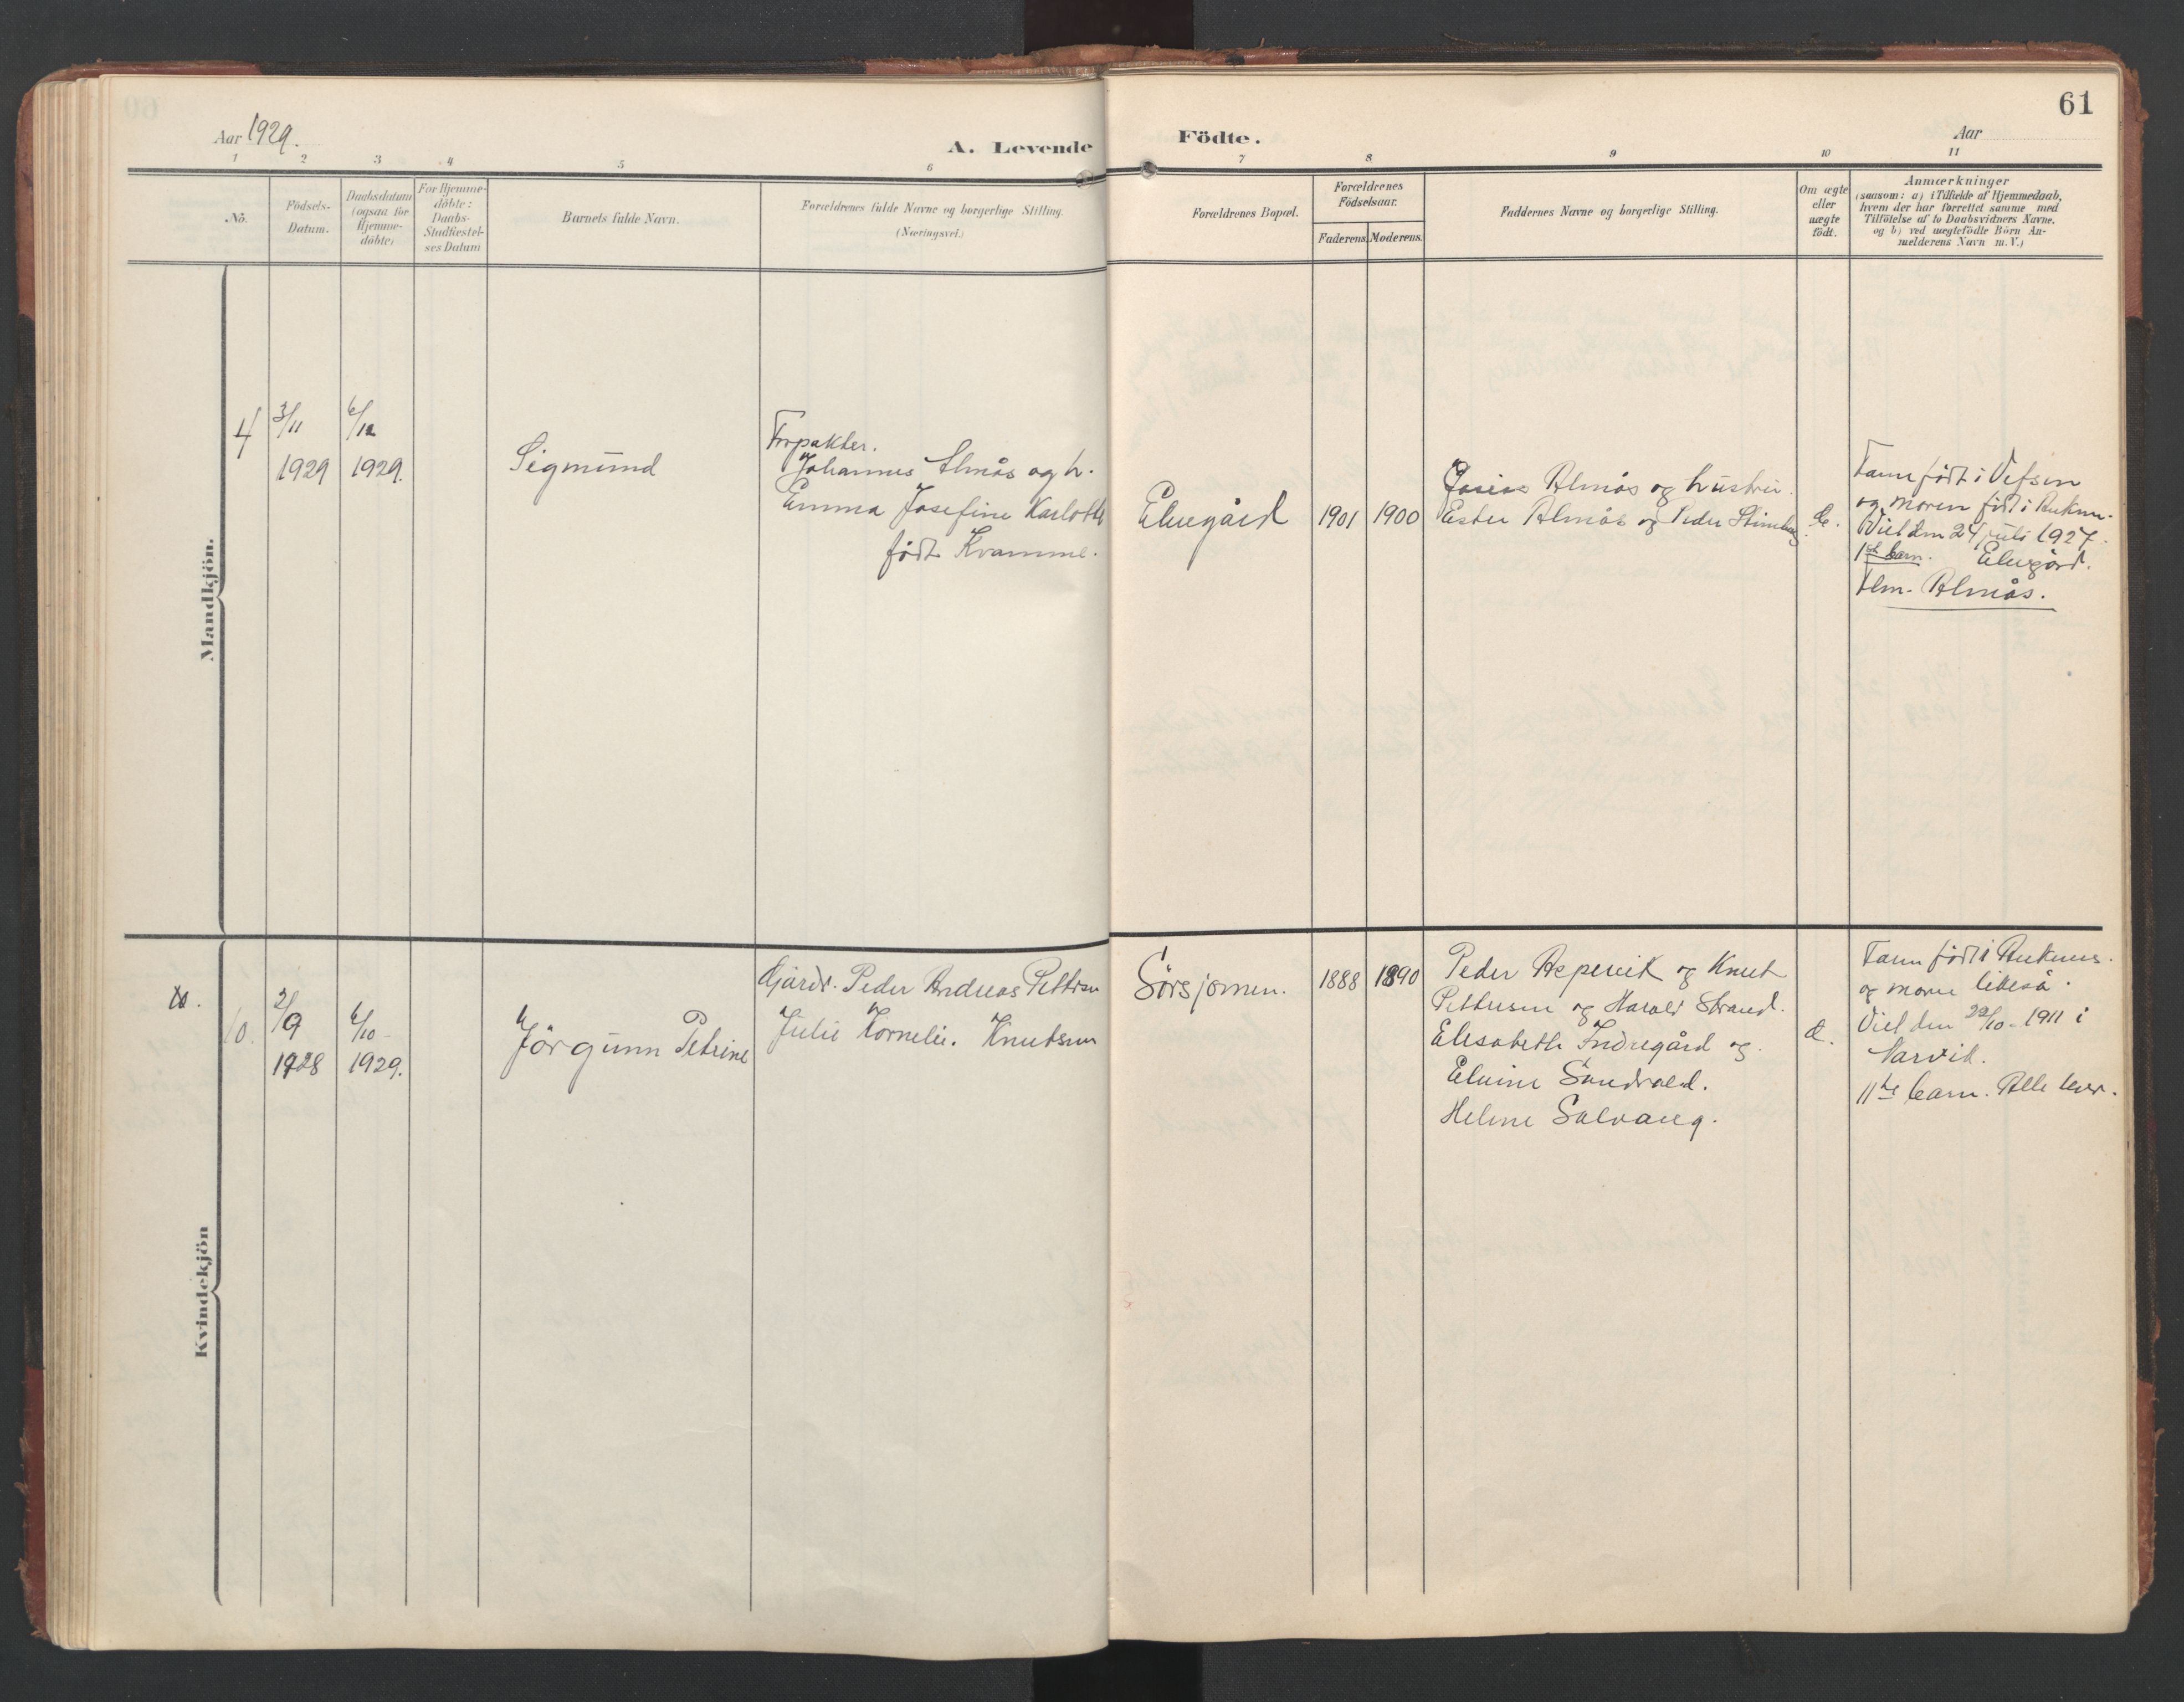 61
Aar 1929.
A. Levende Födte.
Aar
1 2 3 4 5 6 7 8 9 10 11
No.
Födsels-
Datum.
Daabsdatum
(ogsaa for
Hjemme-
döbte)
For Hjemme-
döbte:
Daabs-
Stadfæstel-
ses Datum
Barnets fulde Navn.
Forældrenes fulde Navne og borgerlige Stilling.
(Næringsvei.)
Forældrenes Bopæl.
Forældrenes
Födselsaar.
Faderens. Moderens.
Faddernes Navne og borgerlige Stilling.
Om ægte
eller
uægte
födt.
Anmærkninger
(saasom: a) i Tilfælde af Hjemmedaab,
hvem der har forrettet samme med
Tilföielse af to Daabsvidners Navne.
og b) ved uægtefödte Börn An-
melderens Navn m.V.)
Mandkjön.
4
3/11
1929
6/12
1929.
Sigmund
Forpakter.
Johannes Almås og h.
Emma Josefine Karlotte
född Kvamme.
Elvegård
1901
1900
Almås og hustru
Ester Almås og Peder
e.
Faren född i Vefsen
og moren född i Ankenes.
Viet den 24 juli 1927.
1ste barn. Elvegård.
Fam. Almås.
Kvindekjön
10.
2/9
1928
6/10-
1929.
Jörgunn Petrine
Gårdr. Peder Andreas Pettersen
Julie Kornelie. Knutsen
Sörsjomen.
1888
1890
Peder Aspevik og Knut
Pettersen og Harald Strand.
Elisabeth Indregård og
Elvine Sandvold.
Heline Salvang.
e.
Faren född i Ankenes.
og moren likeså.
Viet den 22/10-1911 i
Narvik.
11te barn. Alle lever.